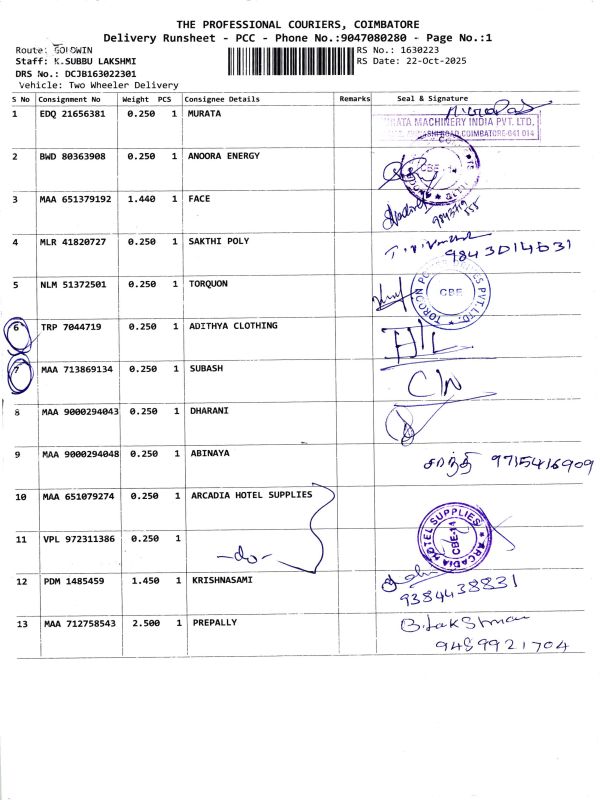 THE PROFESSIONAL COURIERS, COIMBATORE
Delivery Runsheet - PCC - Phone No.:9047080280 - Page No.:1
Route: GOLDWIN
RS No.: 1630223
Staff: K.SUBBU LAKSHMI
RS Date: 22-Oct-2025
DRS No.: DCJB163022301
Vehicle: Two Wheeler Delivery
S No Consignment No Weight PCS Consignee Details Remarks Seal & Signature
1 EDQ 21656381 0.250 1 MURATA
MURATA MACHINERY INDIA PVT. LTD.
ROAD COIMBATORE-641 014
2 BWD 80363908 0.250 1 ANOORA ENERGY
CBE-14
3 MAA 651379192 1.440 1 FACE
4 MLR 41820727 0.250 1 SAKTHI POLY
9843014631
5 NLM 51372501 0.250 1 TORQUON
CBE
PVT.LTD.
6 TRP 7044719 0.250 1 ADITHYA CLOTHING
H/L
7 MAA 713869134 0.250 1 SUBASH
C/N
8 MAA 9000294043 0.250 1 DHARANI
9 MAA 9000294048 0.250 1 ABINAYA
சாந்தி 9715416909
10 MAA 651079274 0.250 1 ARCADIA HOTEL SUPPLIES
ARCADIA HOTEL SUPPLIES
CBE-14
11 VPL 972311386 0.250 1
-do-
12 PDM 1485459 1.450 1 KRISHNASAMI
9384438831
13 MAA 712758543 2.500 1 PREPALLY
B.Lakshman
9489921704